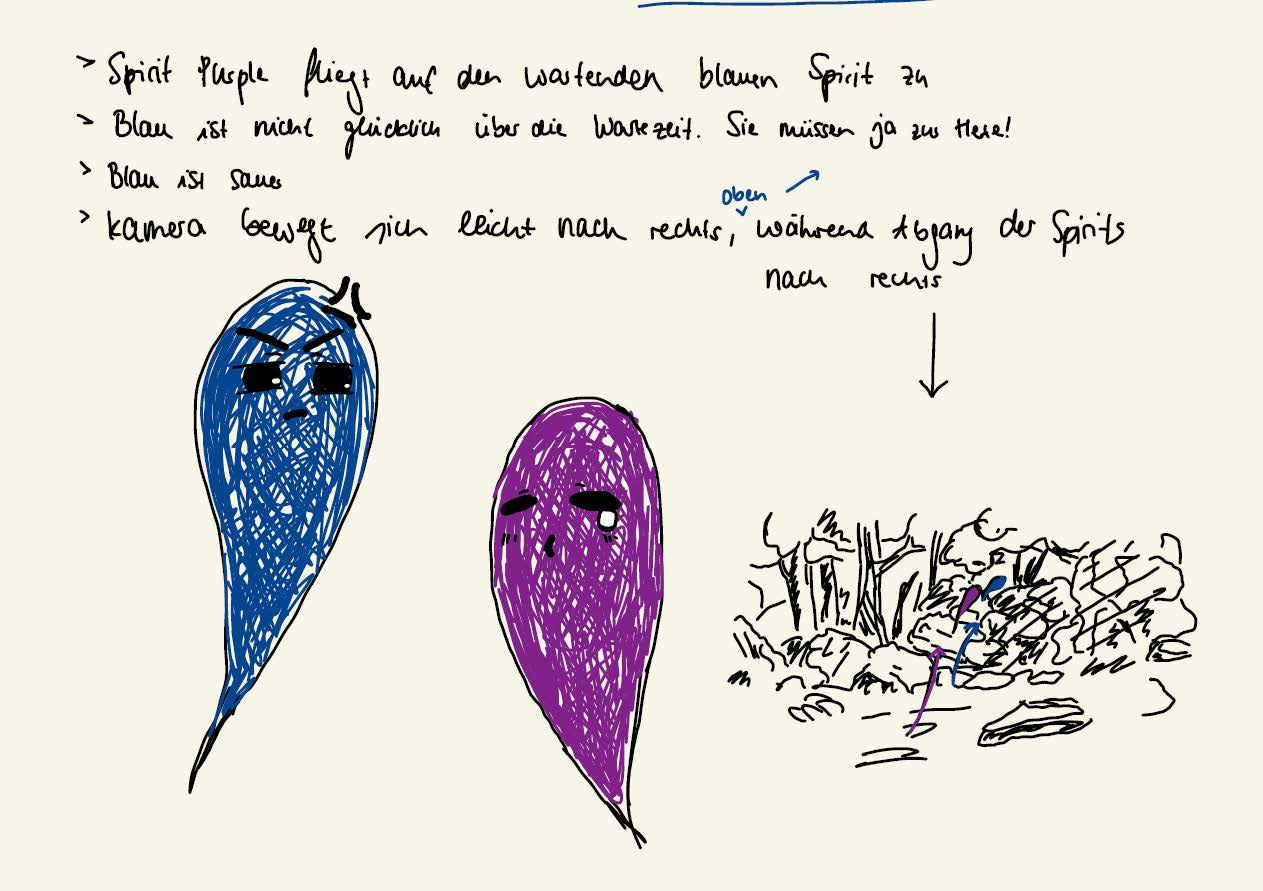 > Spirit Purple fliegt auf den wartenden blauen Spirit zu
> Blau ist nicht glücklich über die Wartezeit. Sie müssen ja zur Hexe!
> Blau ist sauer
oben
> Kamera bewegt sich leicht nach rechts, während Abgang der Spirits
nach rechts